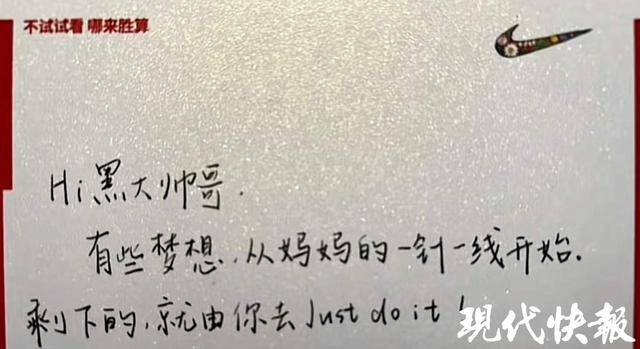 不试试看 哪来胜算
Hi 黑大帅哥.
有些梦想,从妈妈的一针一线开始.
剩下的,就由你去 Just do it !
现代快报